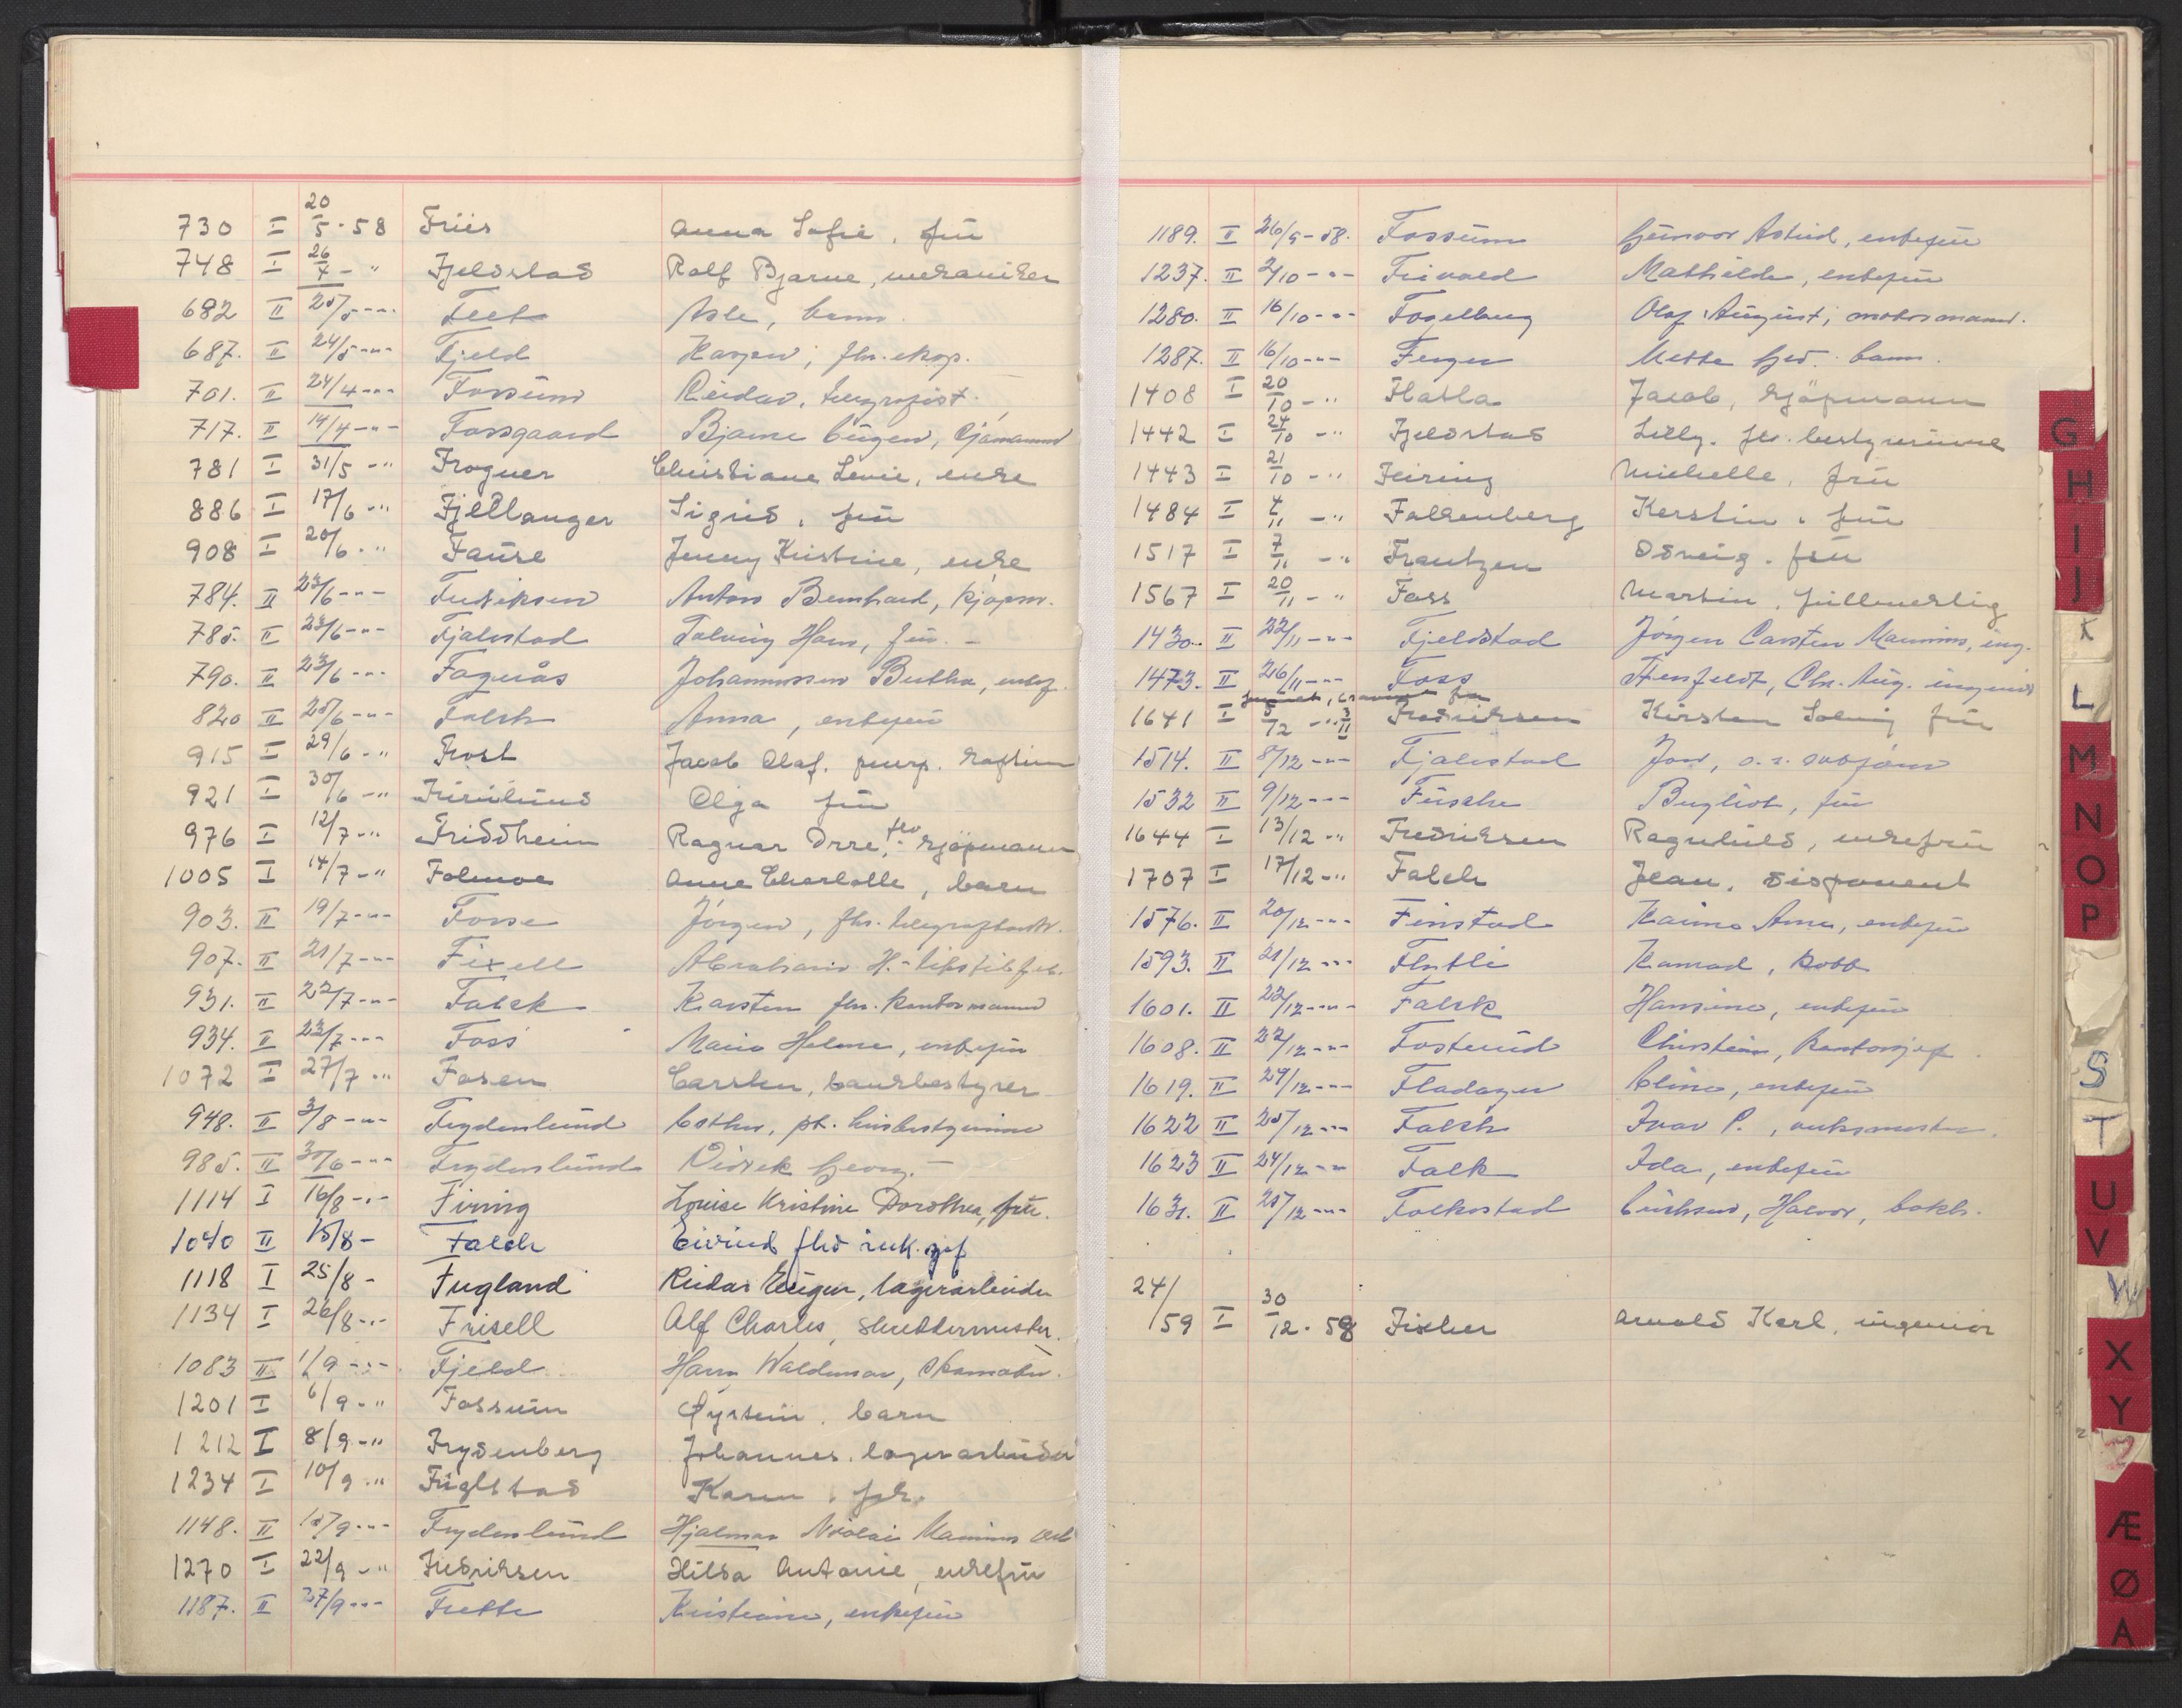 730 I 20/5-58 Friis Anna Sofie, frü
748 I 26/4-" Fjeldstad Rolf Bjarne, mekaniker
682 II 25/5-"- Feet Asle, barn
687. II 24/5-"- Fjeld Kasper, fhv. eksp.
701. II 24/4-"- Fossüm Reidar, telegrafist.
717. II 14/4-"- Fossgaard Bjarne Eügen, sjømannd
781 I 31/5-" Frogner Christiane Levie, enke
886 I 17/6-" Fjellanger Sigrid, frü
908 I 20/6-" Fauske Jenny Kristine, enke
784. II 23/6-"- Fredriksen Anton Bernhard, kjøpm.
785. II 23/6-"- Fjalestad Solveig Hans, frü
790. II 23/6-"- Fagerås Johannessen Bertha, enkef.
820 II 25/6-"- Falch Anna, enkefrü
915 I 29/6-" Frost Jacob Olaf, pens. kaptein
921 I 30/6-" Frisülünd Olga frü
976 I 12/7-" Friddheim Ragnar Orre, fhv. kjøpmann
1005 I 14/7-" Folmoe Anne Charlotte, barn
903. II 19/7-"- Fosse Jörgen, fhv. telegrafbest.
907. II 21/7-"- Fixell Abraham H.
931. II 22/7-"- Falck Karsten fhv. kontormannd
934. II 23/7-"- Foss Marie Helene, enkefrü
1072 I 27/7-" Fosen Carsten, bankbestyrer
948. II 3/8-"- Frydenlünd Esther, pt. hüsbestyrinne
985. II 30/6-"- Frydenlünd Didrik Georg.
1114 I 16/8-"- Firing Louise Kristine Dorothea, frü.
1040 II 15/8- Falch Eivind fhv ink.sjef
1118 I 25/8- Fugland Reidar Eügen, lagerarbeider
1134 I 26/8-"- Frisell Alf Charles, skreddermester.
1083 II 1/9-"- Fjeld Harry Waldemar, skomaker.
1201 I 6/9-" Fossüm Øystein, barn
1212 I 8/9-" Frydenberg Johannes, lagerarbeider
1234 I 10/9-" Füglstad Karen, frk.
1148. II 15/9-"- Frydenlünd Hjalmar Nicolai Maninus
1270 I 22/9-" Fredriksen Hilda Antonie, enkefrü
1187. II 27/9-"- Frette Kristiane, enkefrü
1189. II 26/9-58. Fossüm Günvor Astrid, enkefrü
1237. II 2/10-"- Frivold Mathilde, enkefrü
1280. II 16/10-"- Fogelberg Olaf Aügüst, motormannd.
1287. II 16/10-"- Ferger Mette Ged. barn.
1408 I 20/10-" Flatla Jacob, kjøpmann
1442 I 24/10-" Fjeldstad Lilly. fhv. bestyrerinne
1443 I 21/10-" Feiring Michelle, frü
1484 I 4/11-" Falkenberg Kerstin, frü
1517 I 7/11-" Frantzen Solveig. frü
1567 I 20/11-" Foss Martin, füllmektig
1430. II 22/11-"- Fjeldstad Jörgen Carsten Maninus, ing.
1473. II 26/11-"- Foss Stenfeldt, Chr. Aüg. ingeniør
1641 I 5/12-" 3/11 Fredriksen Kirsten Solveig frü
1514. II 8/12-"- Fjalestad Jon,
1532 II 9/12-"- Füsche Bergliot, frü
1644 I 13/12-" Fredriksen Ragnhild, enkefrü
1707 I 17/12-" Falch Jean, disponent
1576. II 20/12-"- Finstad Karine Anna, enkefrü
1593. II 21/12-"- Flatli Konrad,
1601. II 22/12-"- Falck Hansine, enkefrü
1608. II 22/12-"- Fosterüd Christian, kontorsjef
1619. II 29/12-"- Fladager Eline, enkefrü
1622 II 25/12-"- Falch Ivar P.,
1623 II 24/12-"- Falk Ida, enkefrü
1631. II 25/12-"- Folkestad Erichsen, Halvor, bokh.
24/
/59 I 30/12-58 Fischer Arnold Karl, ingeniör
G
H
I
J
K
L
M
N
O
P
S
T
U
V
W
X
Y
Z
Æ
Ø
A